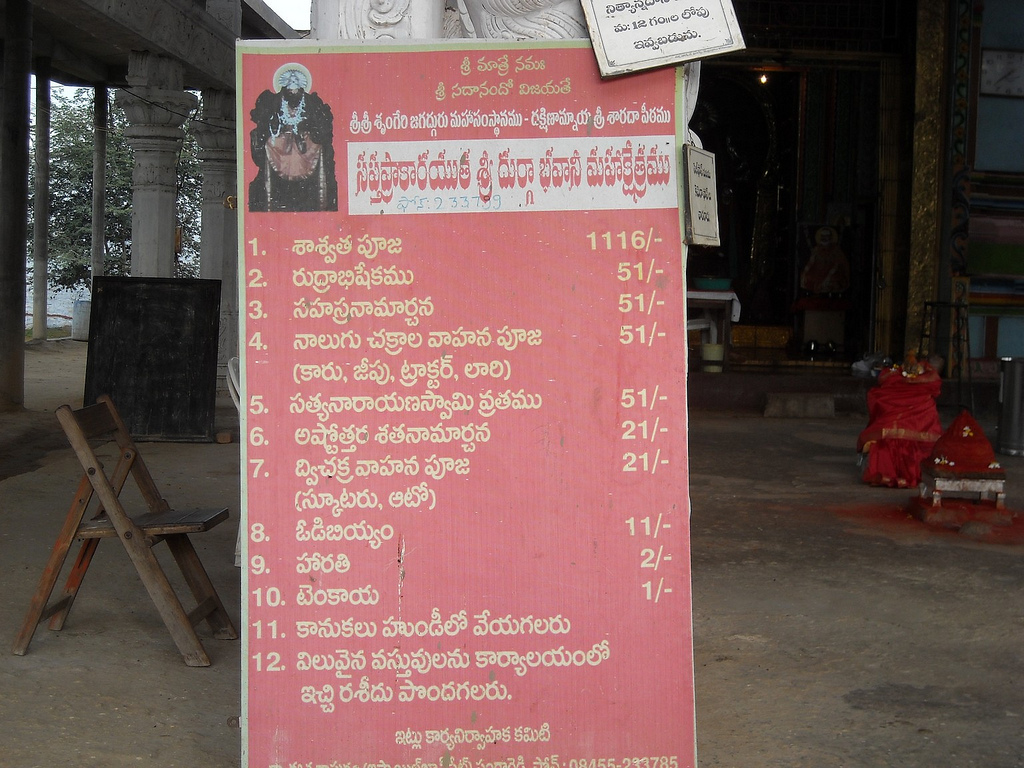 నిత్యాన్నదాన
మ: 12 గం॥ల లోపు
ఇవ్వబడును.
శ్రీ మాత్రే నమః
శ్రీ సదానందో విజయతే
శ్రీశ్రీ శృంగేరి జగద్గురు మహాసంస్థానము - దక్షిణామ్నాయ శ్రీ శారదా పీఠము
సప్తప్రాకారయుత శ్రీ దుర్గా భవానీ మహాక్షేత్రము
ఫోన్: 233799
1. శాశ్వత పూజ 1116/-
2. రుద్రాభిషేకము 51/-
3. సహస్రనామార్చన 51/-
4. నాలుగు చక్రాల వాహన పూజ 51/-
(కారు, జీపు, ట్రాక్టర్, లారి)
5. సత్యనారాయణస్వామి వ్రతము 51/-
6. అష్టోత్తర శతనామార్చన 21/-
7. ద్విచక్ర వాహన పూజ 21/-
(స్కూటరు, ఆటో)
8. ఓడిబియ్యం 11/-
9. హారతి 2/-
10. టెంకాయ 1/-
11. కానుకలు హుండీలో వేయగలరు
12. విలువైన వస్తువులను కార్యాలయంలో
ఇచ్చి రశీదు పొందగలరు.
ఇట్లు కార్యనిర్వాహక కమిటి
ఫోన్ : 08455-233785